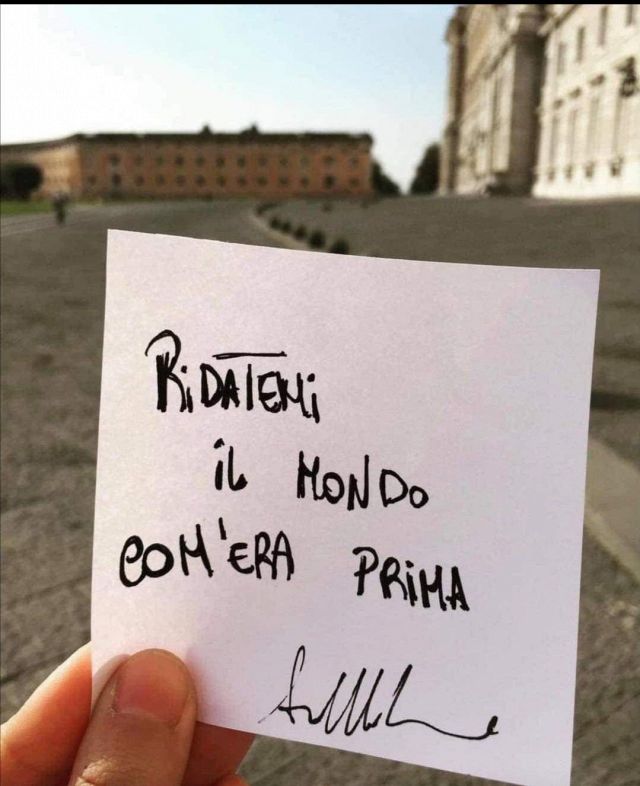 RiDATEMi
iL MONDO
COM'ERA PRiMA